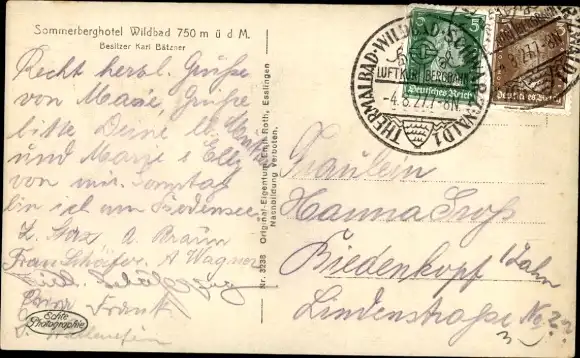 Sommerberghotel Wildbad 750 m ü d M.
Besitzer Karl Bätzner
Recht herzl. Grüße
von Marie, Grüße
bitte Deine lb.
und Marie & Elly
von mir. Sonntag
bin ich am Bodensee
A. Braun
Frau Schäfer A Wagner
Frank
Echte
Photographie
Nr. 3238 Original-Eigentum Emil Roth, Esslingen
Nachbildung Verboten.
THERMALBAD-WILDBAD-SCHWARZWALD 1
LUFTKURORT BERGBAHN
-4.8.27.7-8N.
5
Deutsches Reich
Deutsches Reich
Fräulein
Hanna Groß
Biedenkopf /Lahn
Lindenstraße No 22